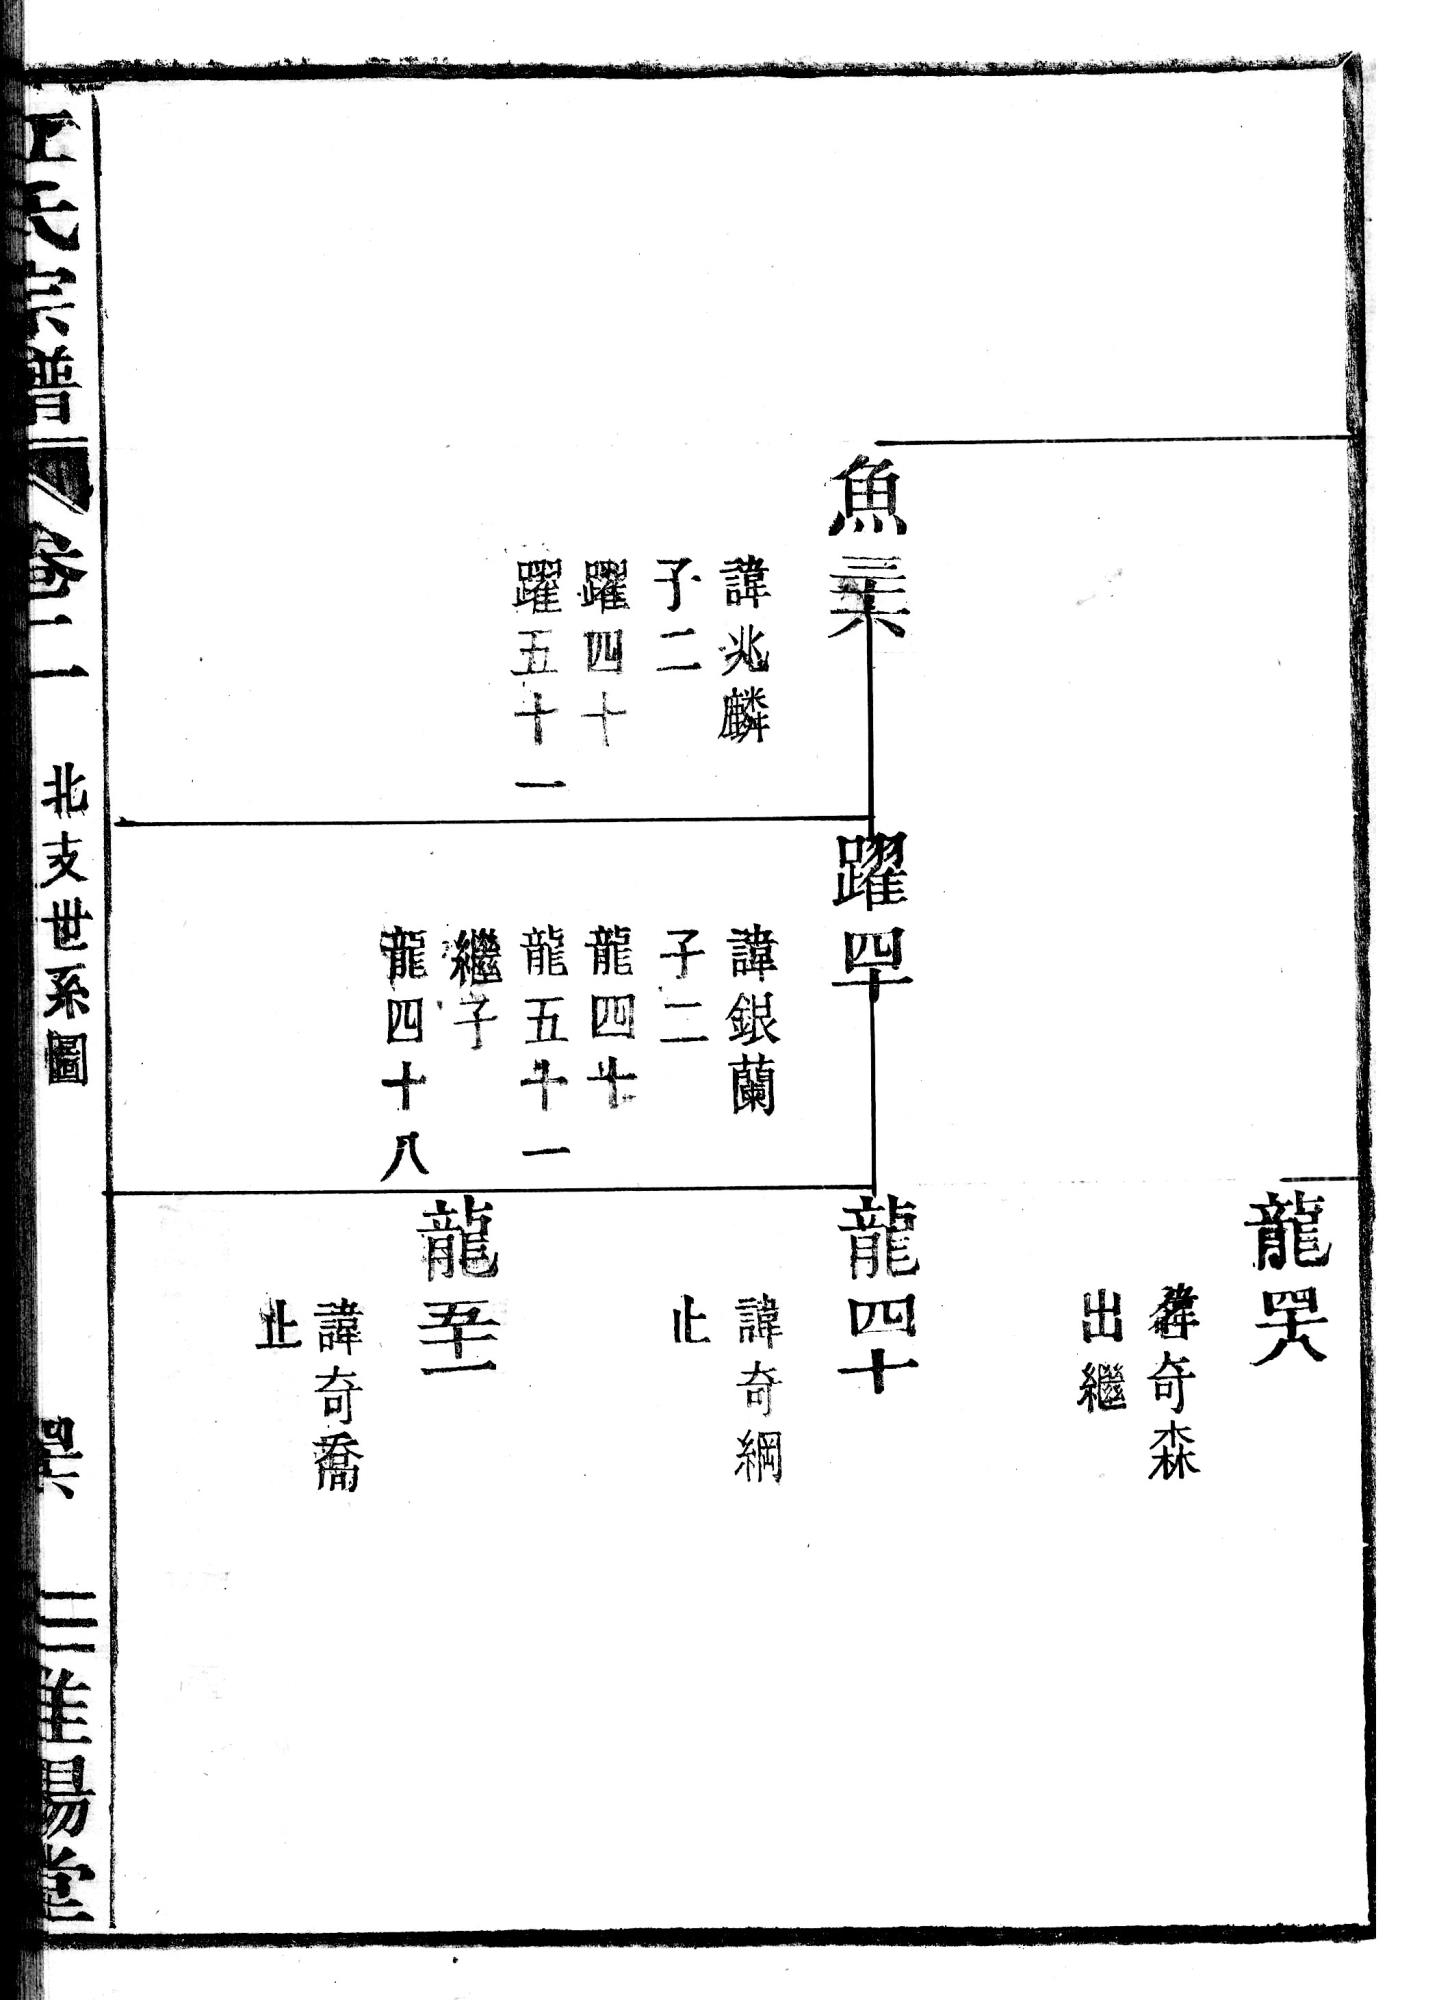 龍四十八
諱奇森
出繼
魚三十六
諱兆麟
子二
躍四十
躍五十一
躍四十
諱銀蘭
子二
龍四十
龍五十一
繼子
龍四十八
龍四十
諱奇綱
止
龍五十一
諱奇喬
止
氏宗譜
卷二
北支世系圖
四十六
三
陽堂